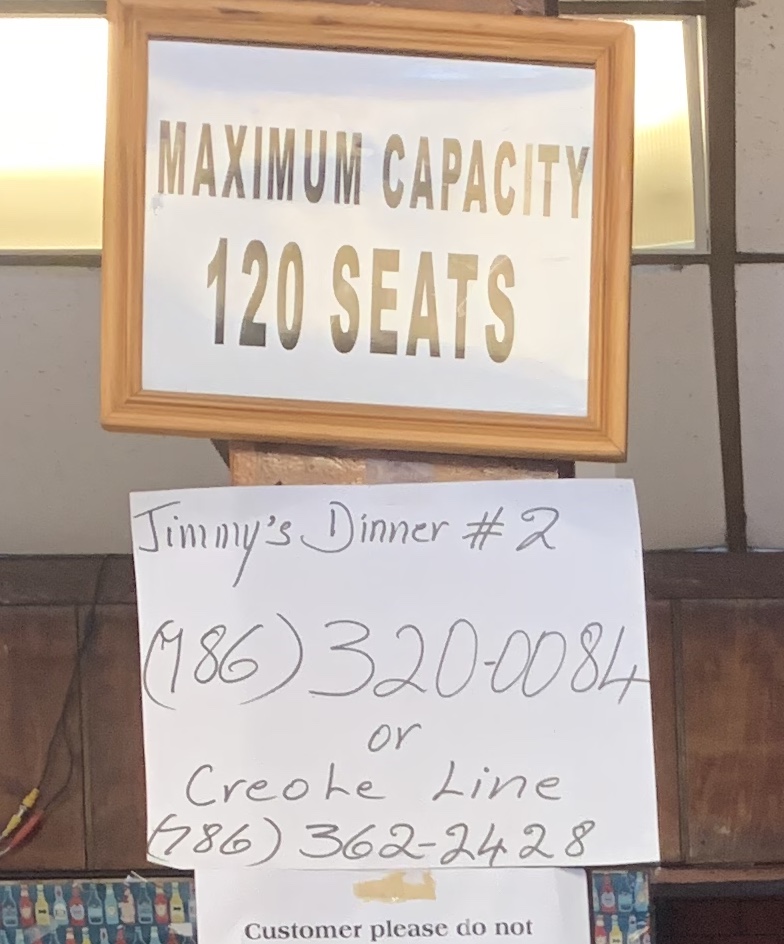 MAXIMUM CAPACITY
120 SEATS
Jimmy's Dinner #2
(786) 320-0084
or
Creole Line
(786) 362-2428
Customer please do not